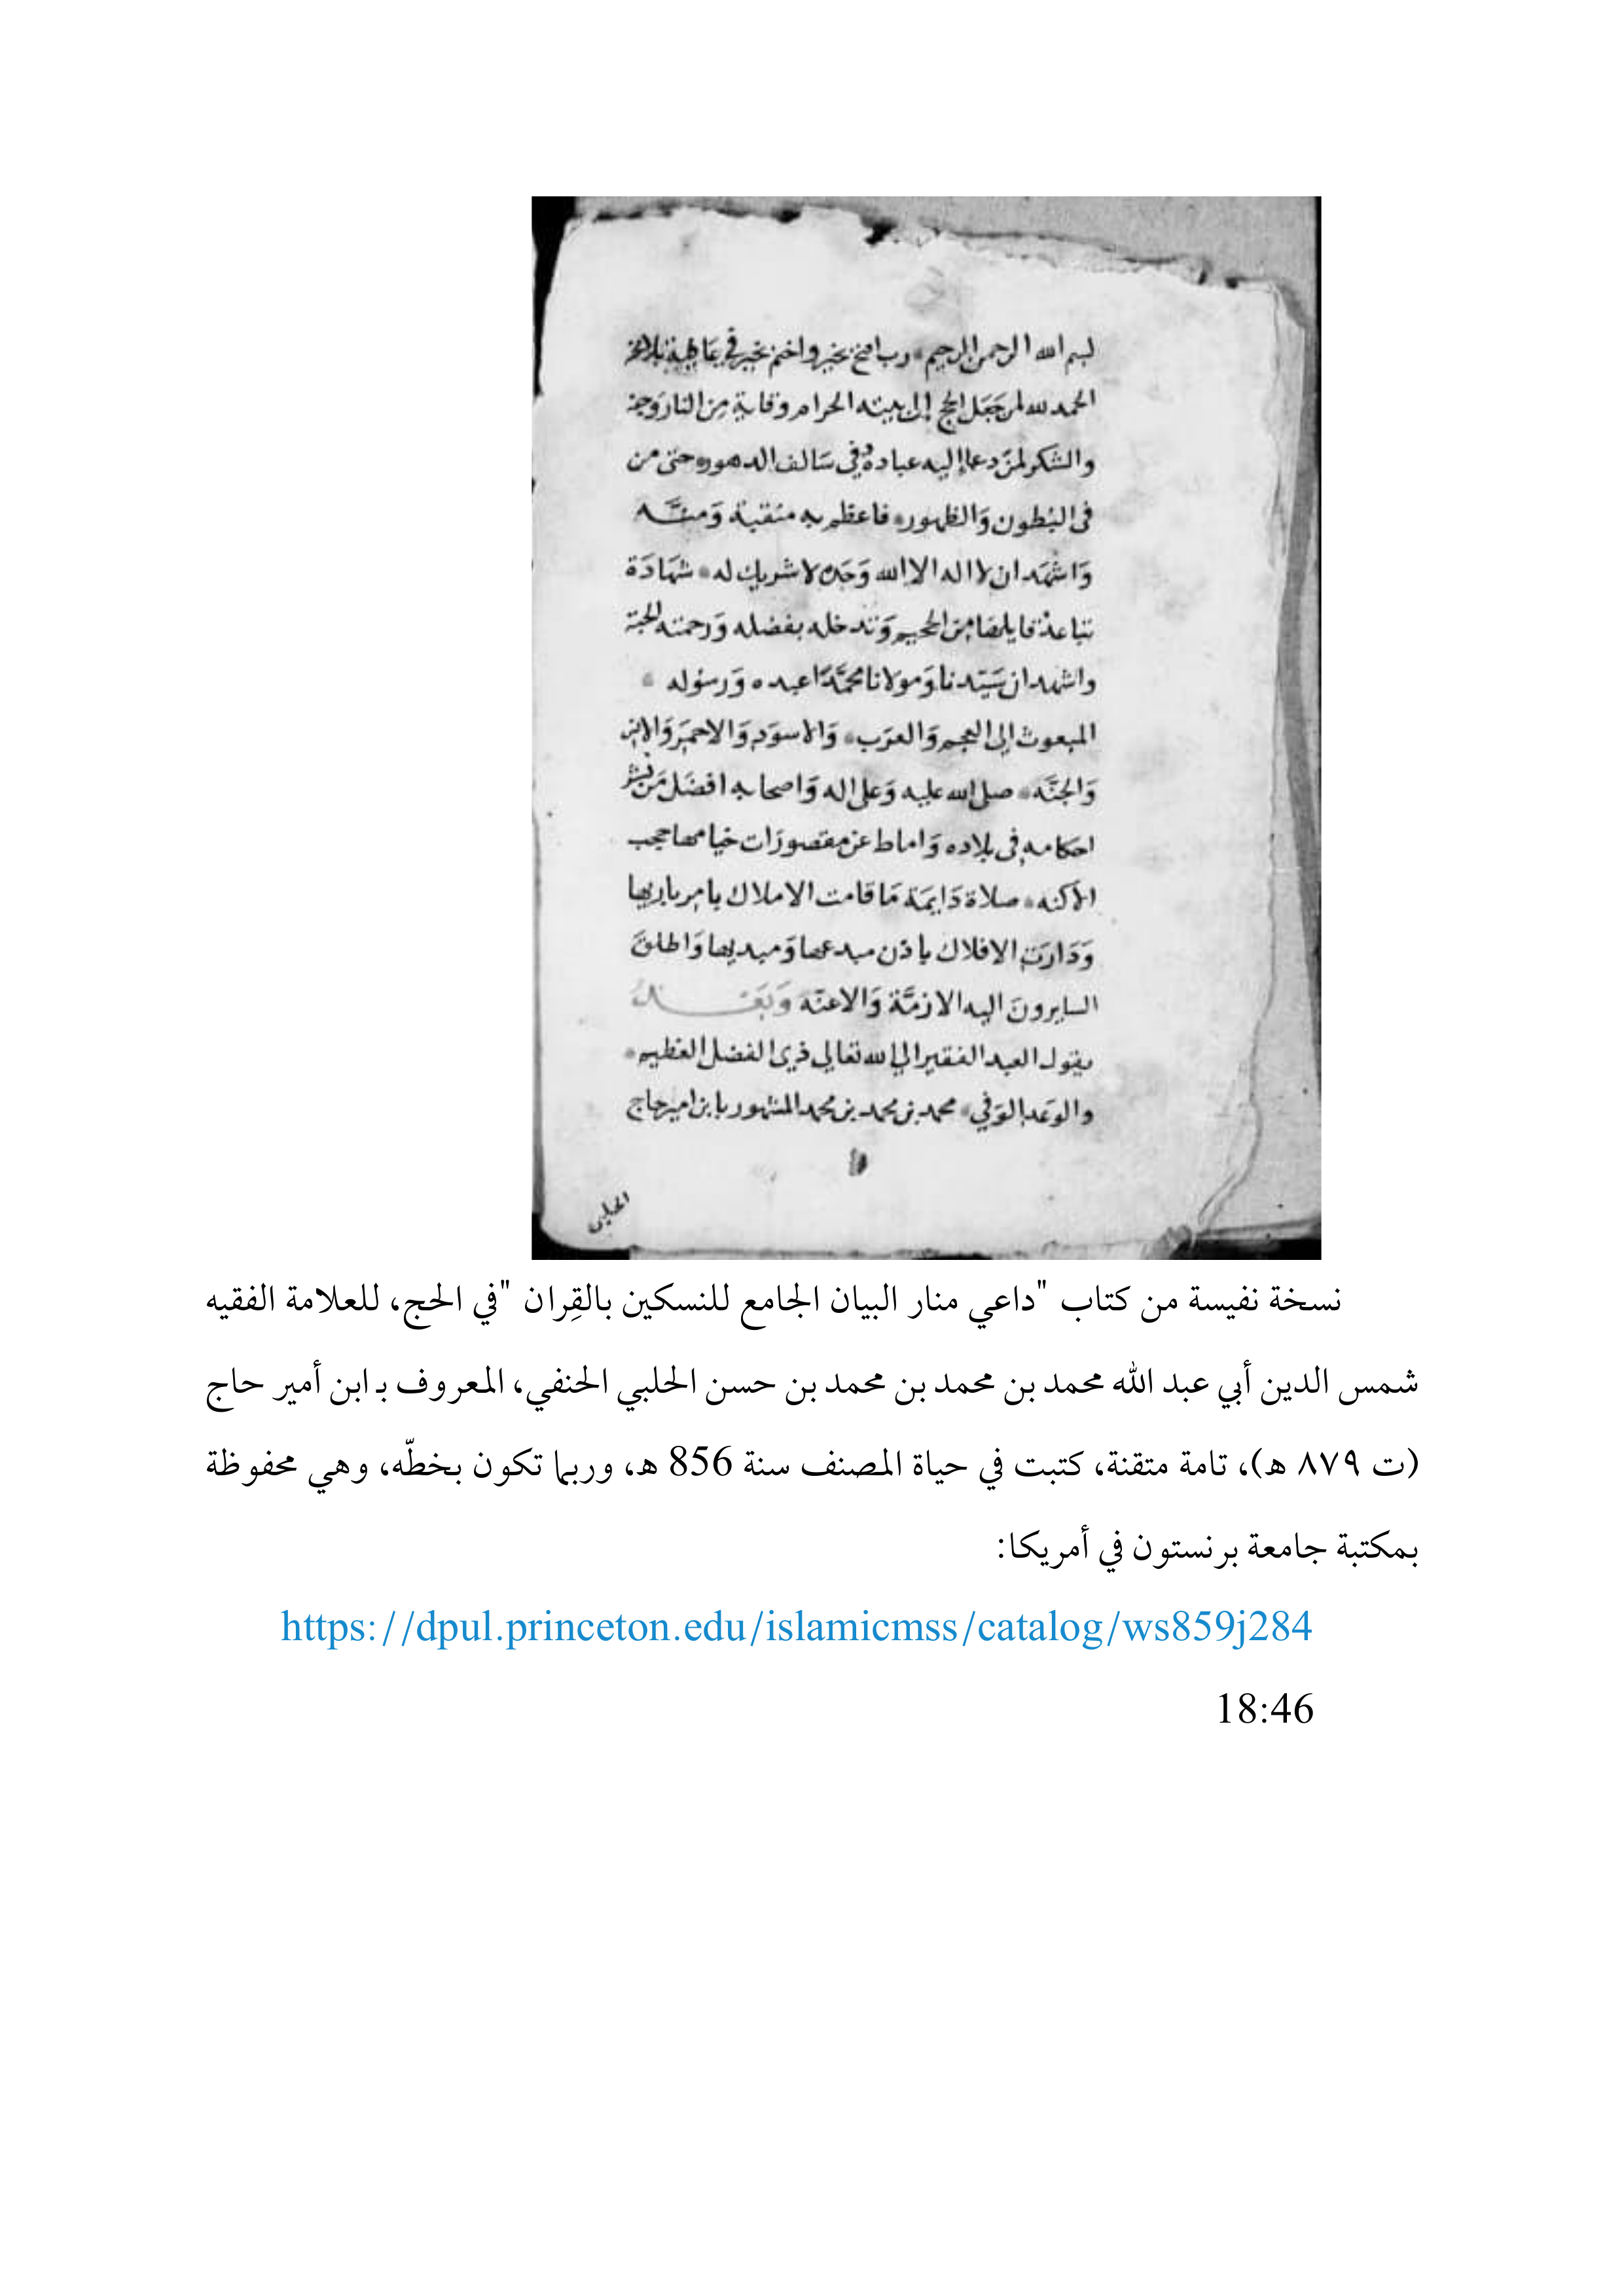 بسم الله الرحمن الرحيم رب افتح بخير واختم بخير في عافية بلا
الحمد لله لمن جَعَل الحج إلى بيته الحرام وقاية مِن النار وجنه
والشكر لمن دعا إليه عباده في سَالف الدهور حتى من
في البُطون وَالظهور فاعظم به منقبة وَمنَّه
وَاشهَد ان لا اله الا الله وَحده لا شريك له شهَادَة
تباعد قايلها مِن الجحيم وَتدخله بفضله وَرحمته الجنة
واشهد ان سَيّدنا وَمولانا محمَّدًا عبده وَرسُوله
المبعوث إلى العجم وَالعرَب وَالاسوَد وَالاحمَر وَالانس
وَالجنَّه صلى الله عليه وَعلى اله وَاصحابه افضَل مَن نشر
احكامه في بلاده وَاماط عن مقصورَات خيامها حجب
الأكنه صلاة دَايمَة مَا قامت الاملاك بامر باريها
وَدَارَت الافلاك باذن مبدعها وَمبديها وَاطلق
السايرونَ اليه الازمَّة وَالاعنّه وَبَعْدُ
يقول العبد الفقير الي الله تعالي ذي الفضل العظيم
والوَعد الوَفي محمد بن محمد بن محمد المشهور بابن امير حاج
الحلبي
نسخة نفيسة من كتاب "داعي منار البيان الجامع للنسكين بالقِران "في الحج، للعلامة الفقيه
شمس الدين أبي عبد الله محمد بن محمد بن محمد بن حسن الحلبي الحنفي، المعروف بـ ابن أمير حاج
(ت ٨٧٩ هـ)، تامة متقنة، كتبت في حياة المصنف سنة 856 هـ، وربما تكون بخطّه، وهي محفوظة
بمكتبة جامعة برنستون في أمريكا:
https://dpul.princeton.edu/islamicmss/catalog/ws859j284
18:46